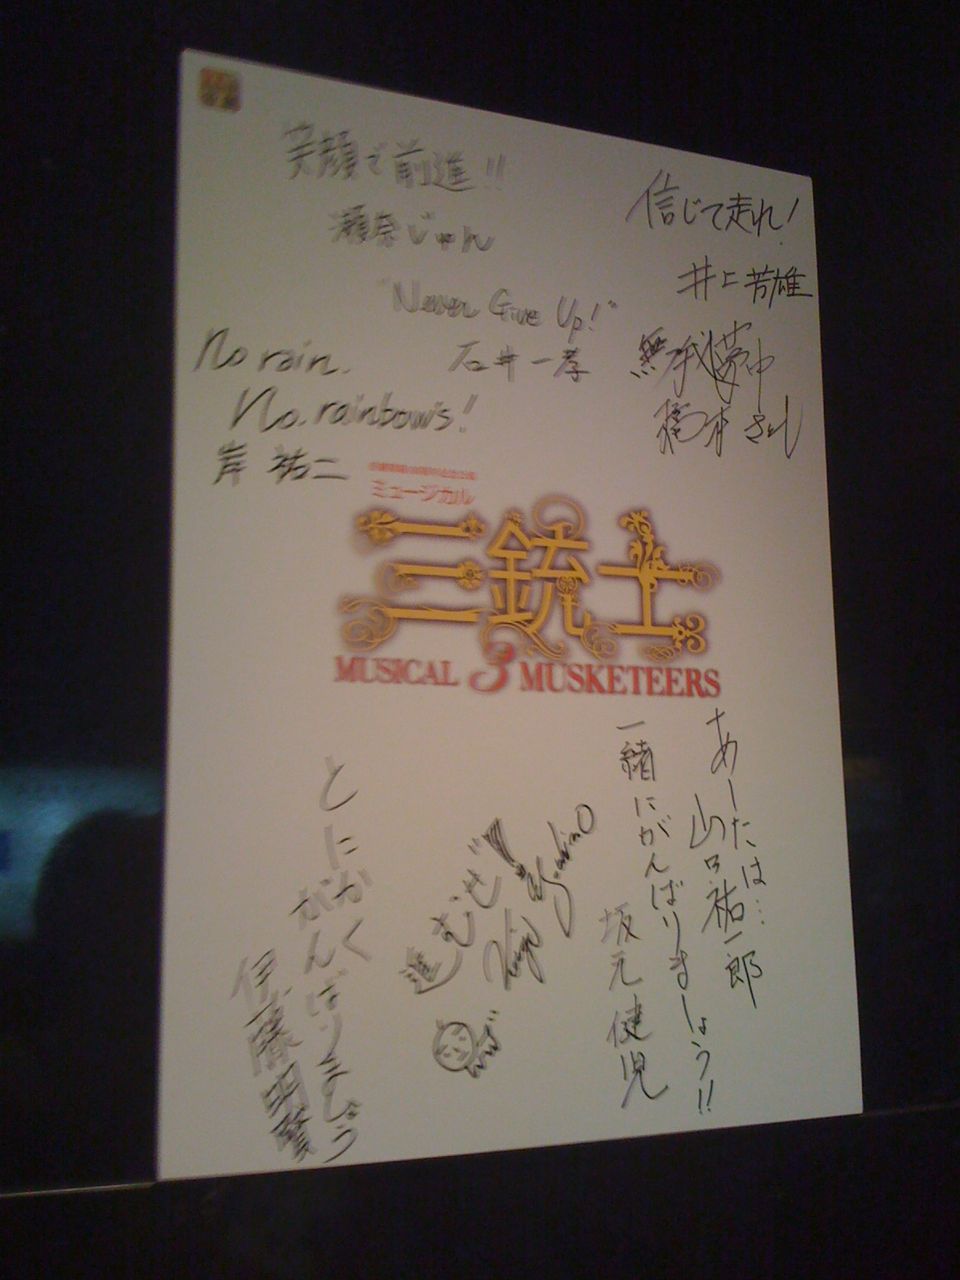 笑顔で前進!!
瀬奈じゅん
信じて走れ!
井上芳雄
"Never Give Up!"
石井一孝
無我夢中
橋本さとし
No rain.
No. rainbows!
岸 祐二
ミュージカル
三銃士
MUSICAL 3 MUSKETEERS
あーたは…
山口祐一郎
一緒にがんばりましょう!!
坂元健児
進むぜ!
とにかく
がんばりましょう
伊藤明賢